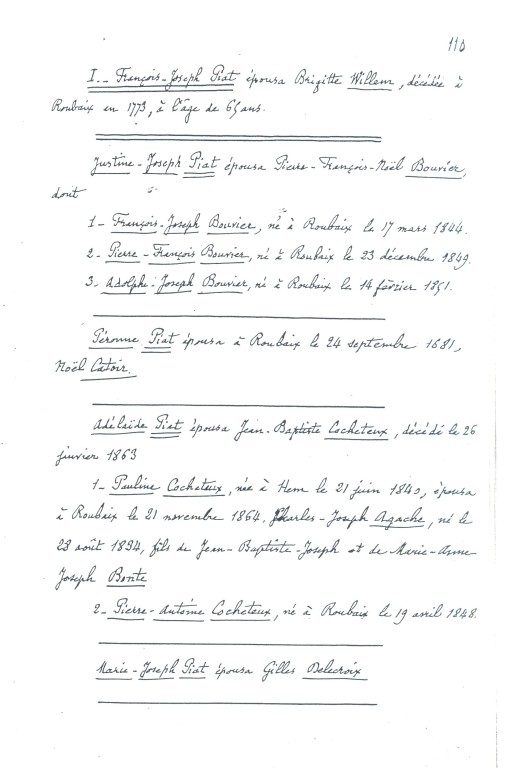 110
I.- François-Joseph Piat épousa Brigitte Willem, décédée à
Roubaix en 1773, à l'âge de 65 ans.
Justine-Joseph Piat épousa Pierre-François-Noël Bouvier,
dont
1- François-Joseph Bouvier, né à Roubaix le 17 mars 1844.
2- Pierre-François Bouvier, né à Roubaix le 23 décembre 1849.
3- Adolphe-Joseph Bouvier, né à Roubaix le 14 février 1851.
Péronne Piat épousa à Roubaix le 24 septembre 1681,
Noël Catoir.
Adélaïde Piat épousa Jean-Baptiste Cocheteux, décédé le 26
janvier 1863
1- Pauline Cocheteux, née à Hem le 21 juin 1840, épousa
à Roubaix le 21 novembre 1864, Charles-Joseph Agache, né le
23 août 1834, fils de Jean-Baptiste-Joseph et de Marie-Anne
Joseph Bonte
2- Pierre-Antoine Cocheteux, né à Roubaix le 19 avril 1848.
Marie-Joseph Piat épousa Gilles Delecroix